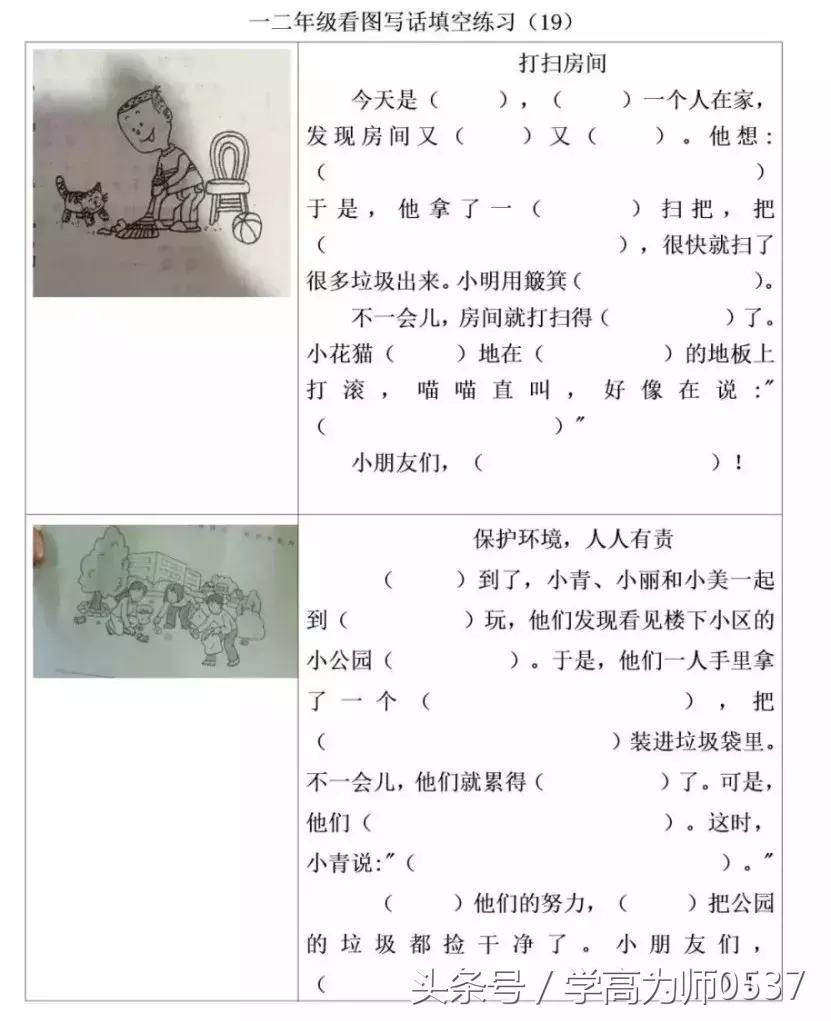 一二年级看图写话填空练习（19）
打扫房间
今天是（　　），（　　）一个人在家，
发现房间又（　　）又（　　）。他想：
（　　　　　　　　　　）
于是，他拿了一（　　　）扫把，把
（　　　　　　　　　），很快就扫了
很多垃圾出来。小明用簸箕（　　　　　　）。
不一会儿，房间就打扫得（　　　　）了。
小花猫（　　）地在（　　　　）的地板上
打滚，喵喵直叫，好像在说:"
（　　　　　　　　）"
小朋友们，（　　　　　　　　）！
保护环境，人人有责
（　　）到了，小青、小丽和小美一起
到（　　　　）玩，他们发现看见楼下小区的
小公园（　　　　）。于是，他们一人手里拿
了一个（　　　　　　　），把
（　　　　　　　　　　）装进垃圾袋里。
不一会儿，他们就累得（　　　　）了。可是，
他们（　　　　　　　　　）。这时，
小青说:"（　　　　　　　　　　）。"
（　　）他们的努力，（　　）把公园
的垃圾都捡干净了。小朋友们，
（　　　　　　　　　　）！
头条号 / 学高为师0537